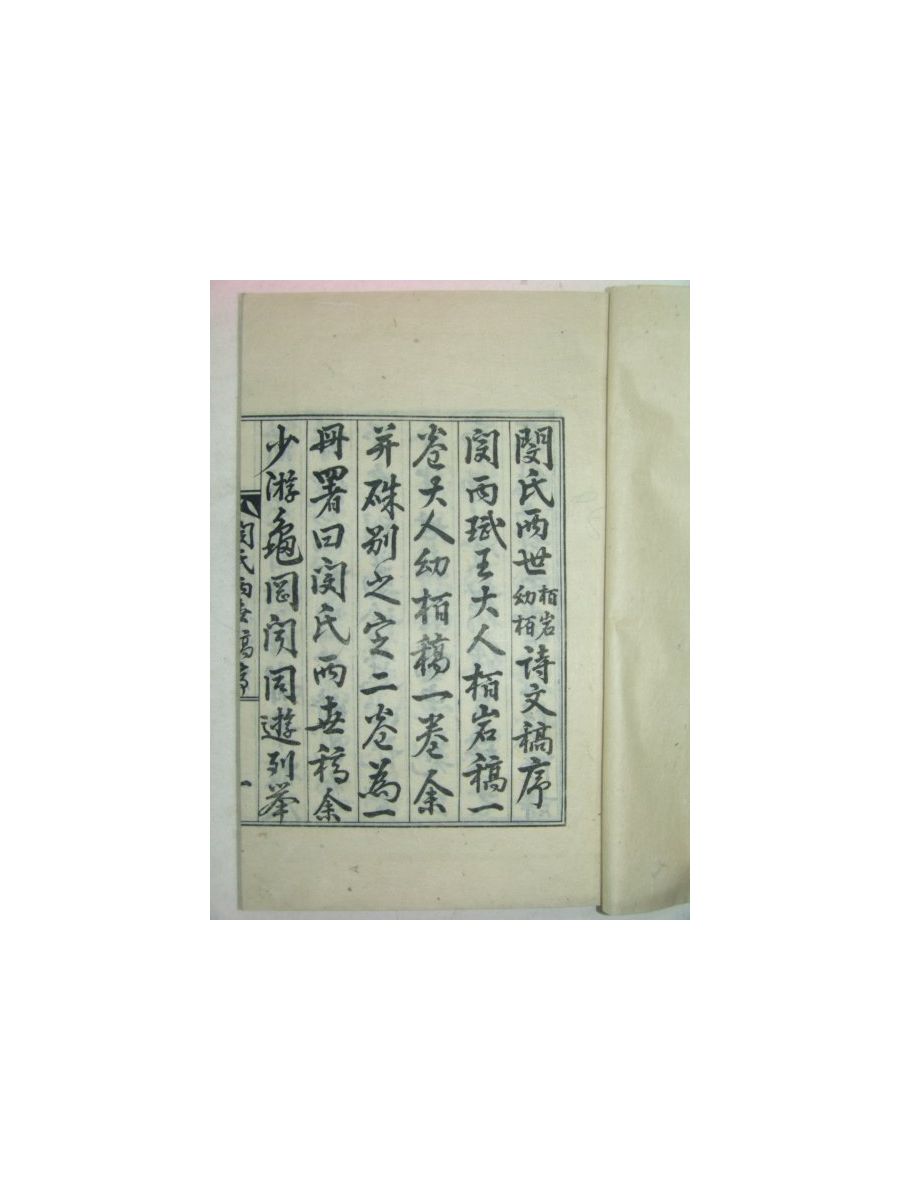 閔氏兩世栢岩幼栢詩文稿序
閔丙珷王大人栢岩稿一
卷大人幼栢稿一卷余
并硃別之定二卷為一
冊署曰閔氏兩世稿余
少游龜岡閔同遊列挙
閔氏兩世稿序
一